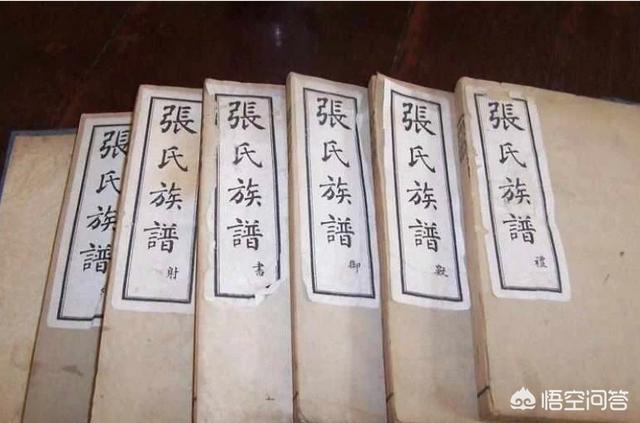 張氏族譜
張氏族譜 射
張氏族譜 書
張氏族譜 御
張氏族譜 數
張氏族譜 禮
悟空问答